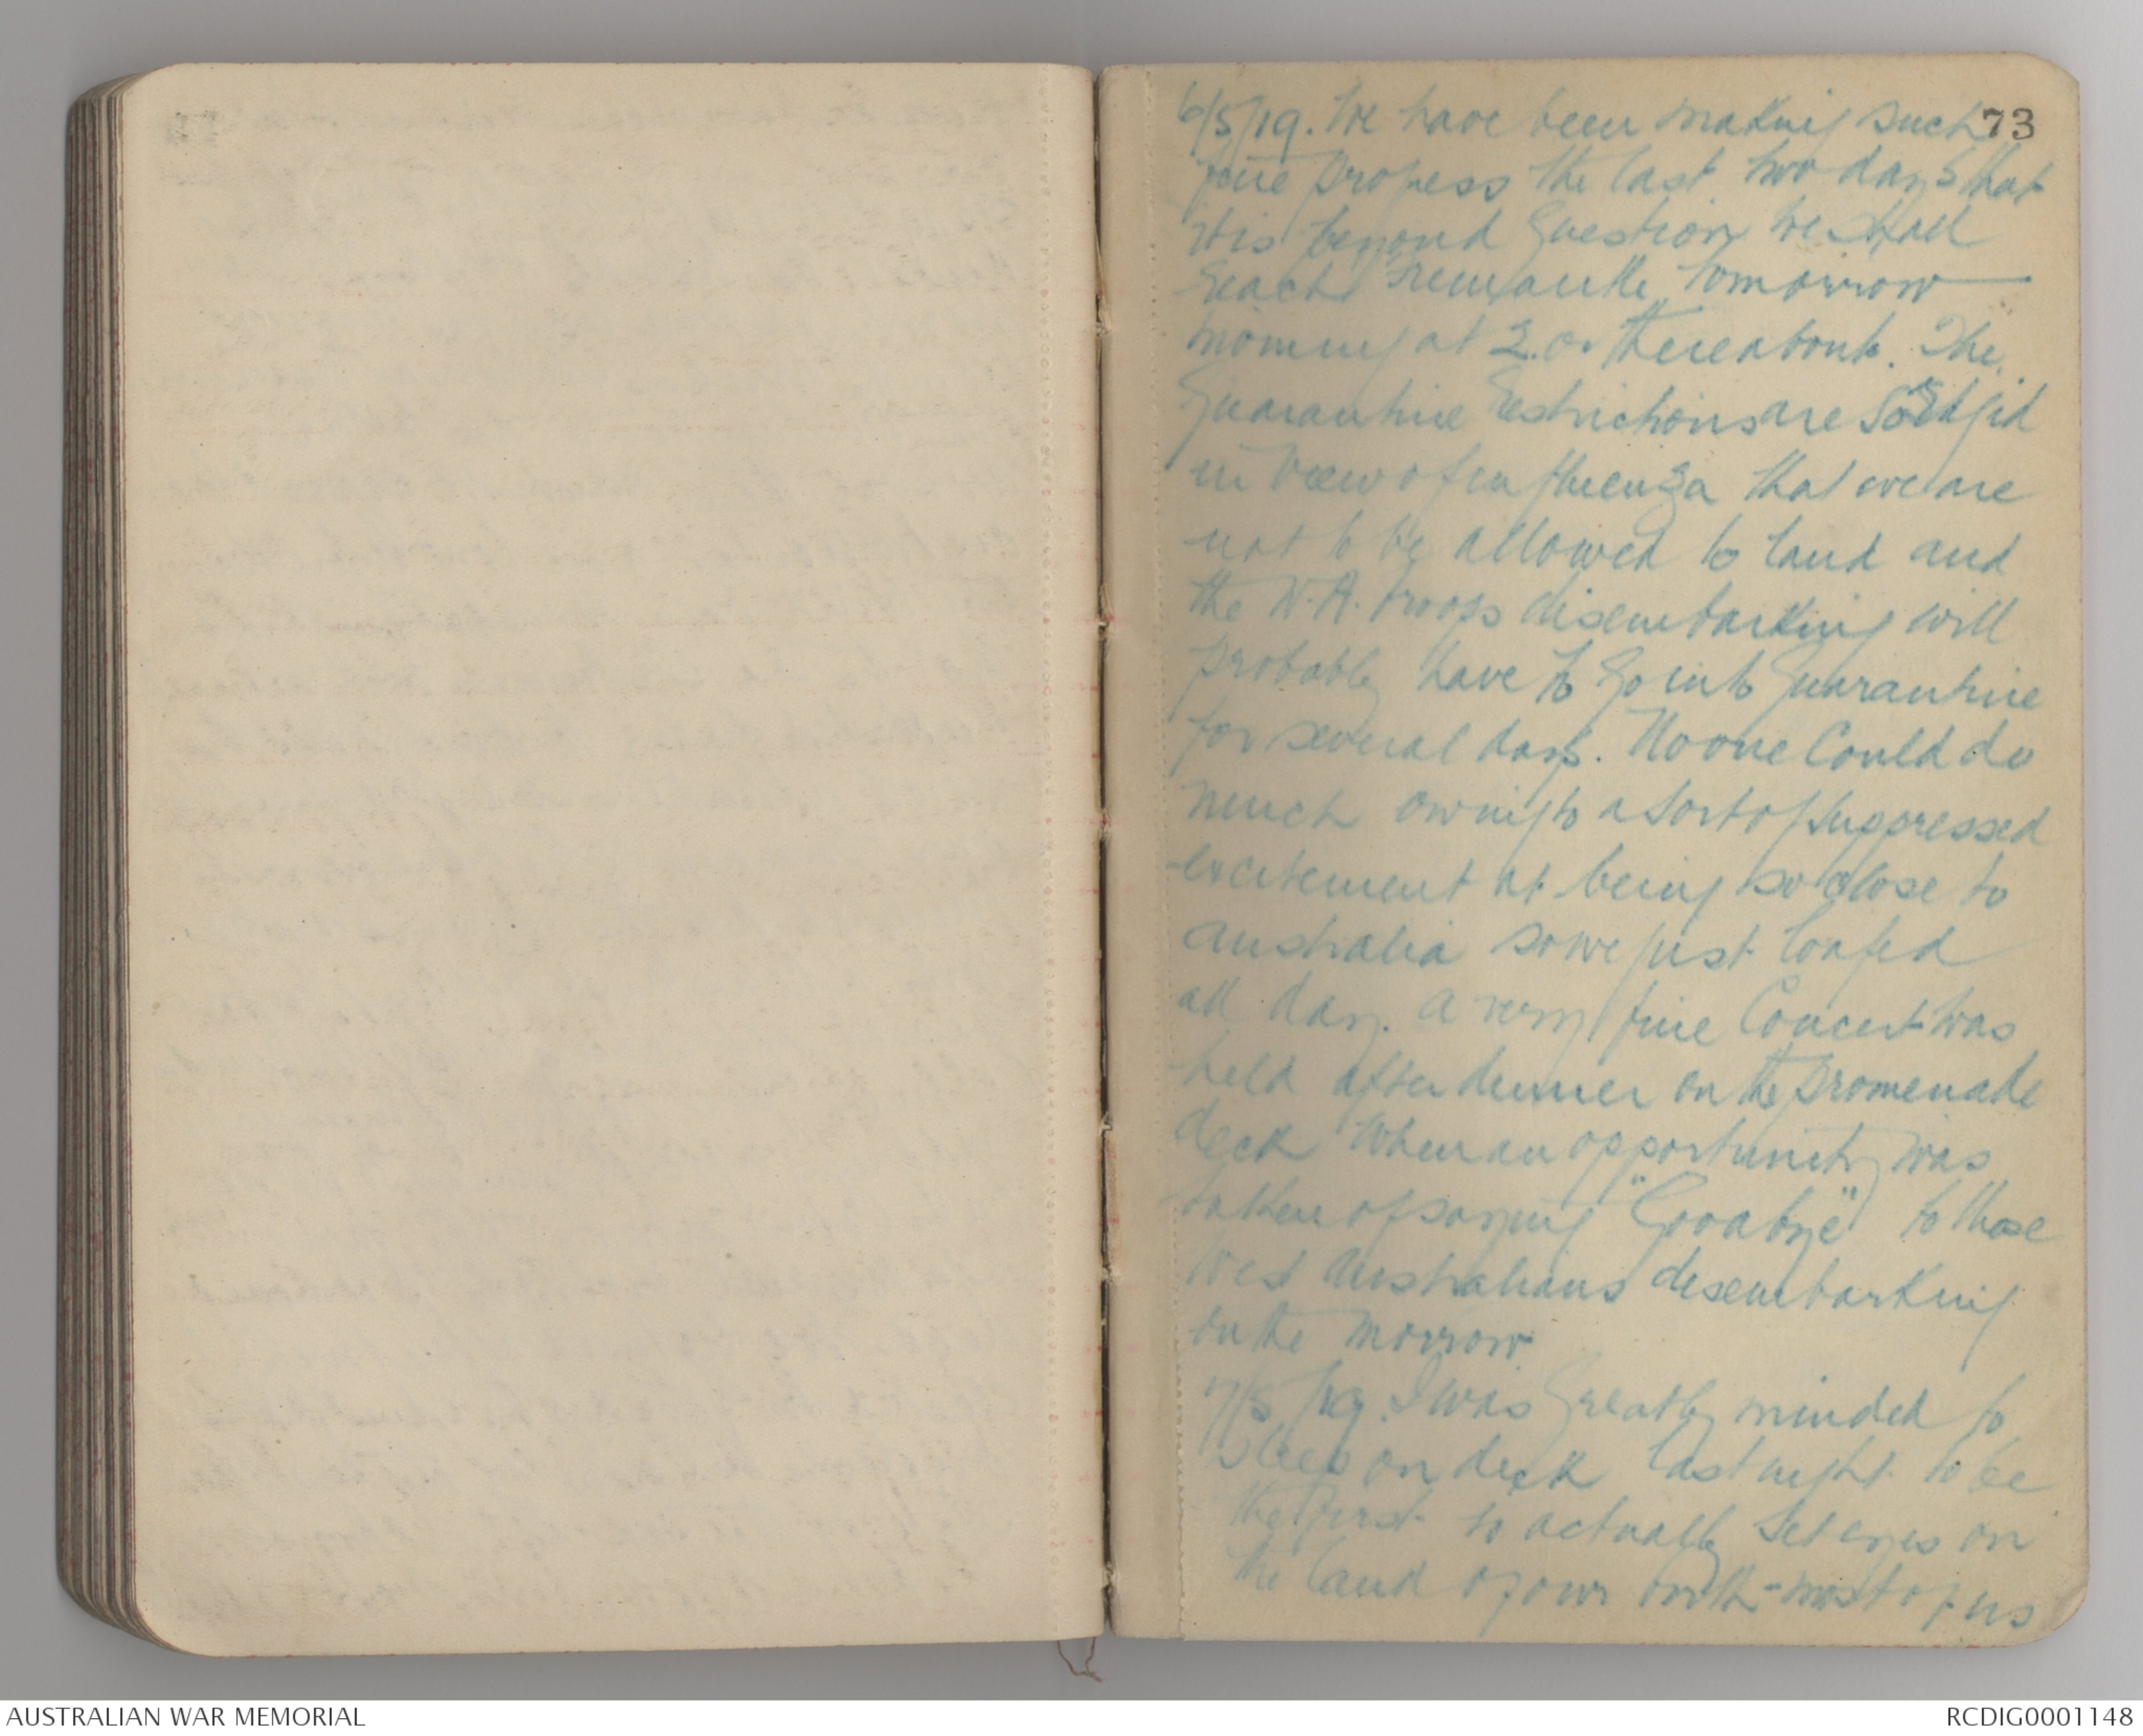 73
6/5/19. We have been making such
fine progress the last two days that
it is beyond question we shall
reach Fremantle tomorrow
morning at 2. or thereabouts. The
Quarantine Restrictions are so rigid
in view of influenza that we are
not to be allowed to land and
the W.A. troops disembarking will
probably have to go into Quarantine
for several days. No one could do
much owing to a sort of suppressed
excitement at being so close to
Australia so we just loafed
all day. A very fine Concert was
held after dinner on the promenade
deck when an opportunity was
taken of saying "Goodbye" to those
West Australians disembarking
on the morrow.
7/5/19. I was greatly minded to
sleep on deck last night to be
the first to actually set eyes on
the land of our birth - most of us
AUSTRALIAN WAR MEMORIAL
RCDIG0001148